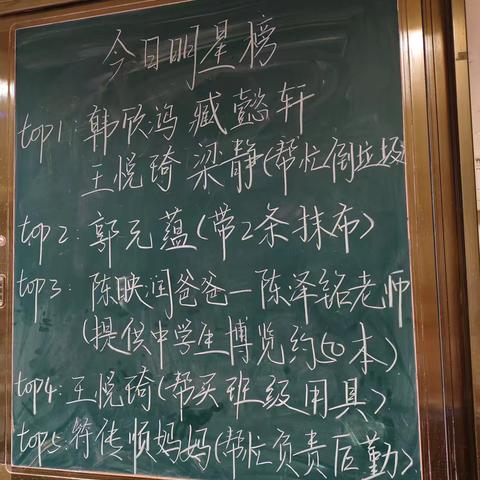 今日明星榜
top1: 韩欣鸿 臧懿轩
王悦琦 梁静(帮忙倒垃圾
top2: 郭元蕴(带2条抹布)
top3: 陈映润爸爸—陈泽铭老师
(提供中学生博览约50本)
top4: 王悦琦(帮买班级用具)
top5: 符传顺妈妈(帮忙负责后勤)